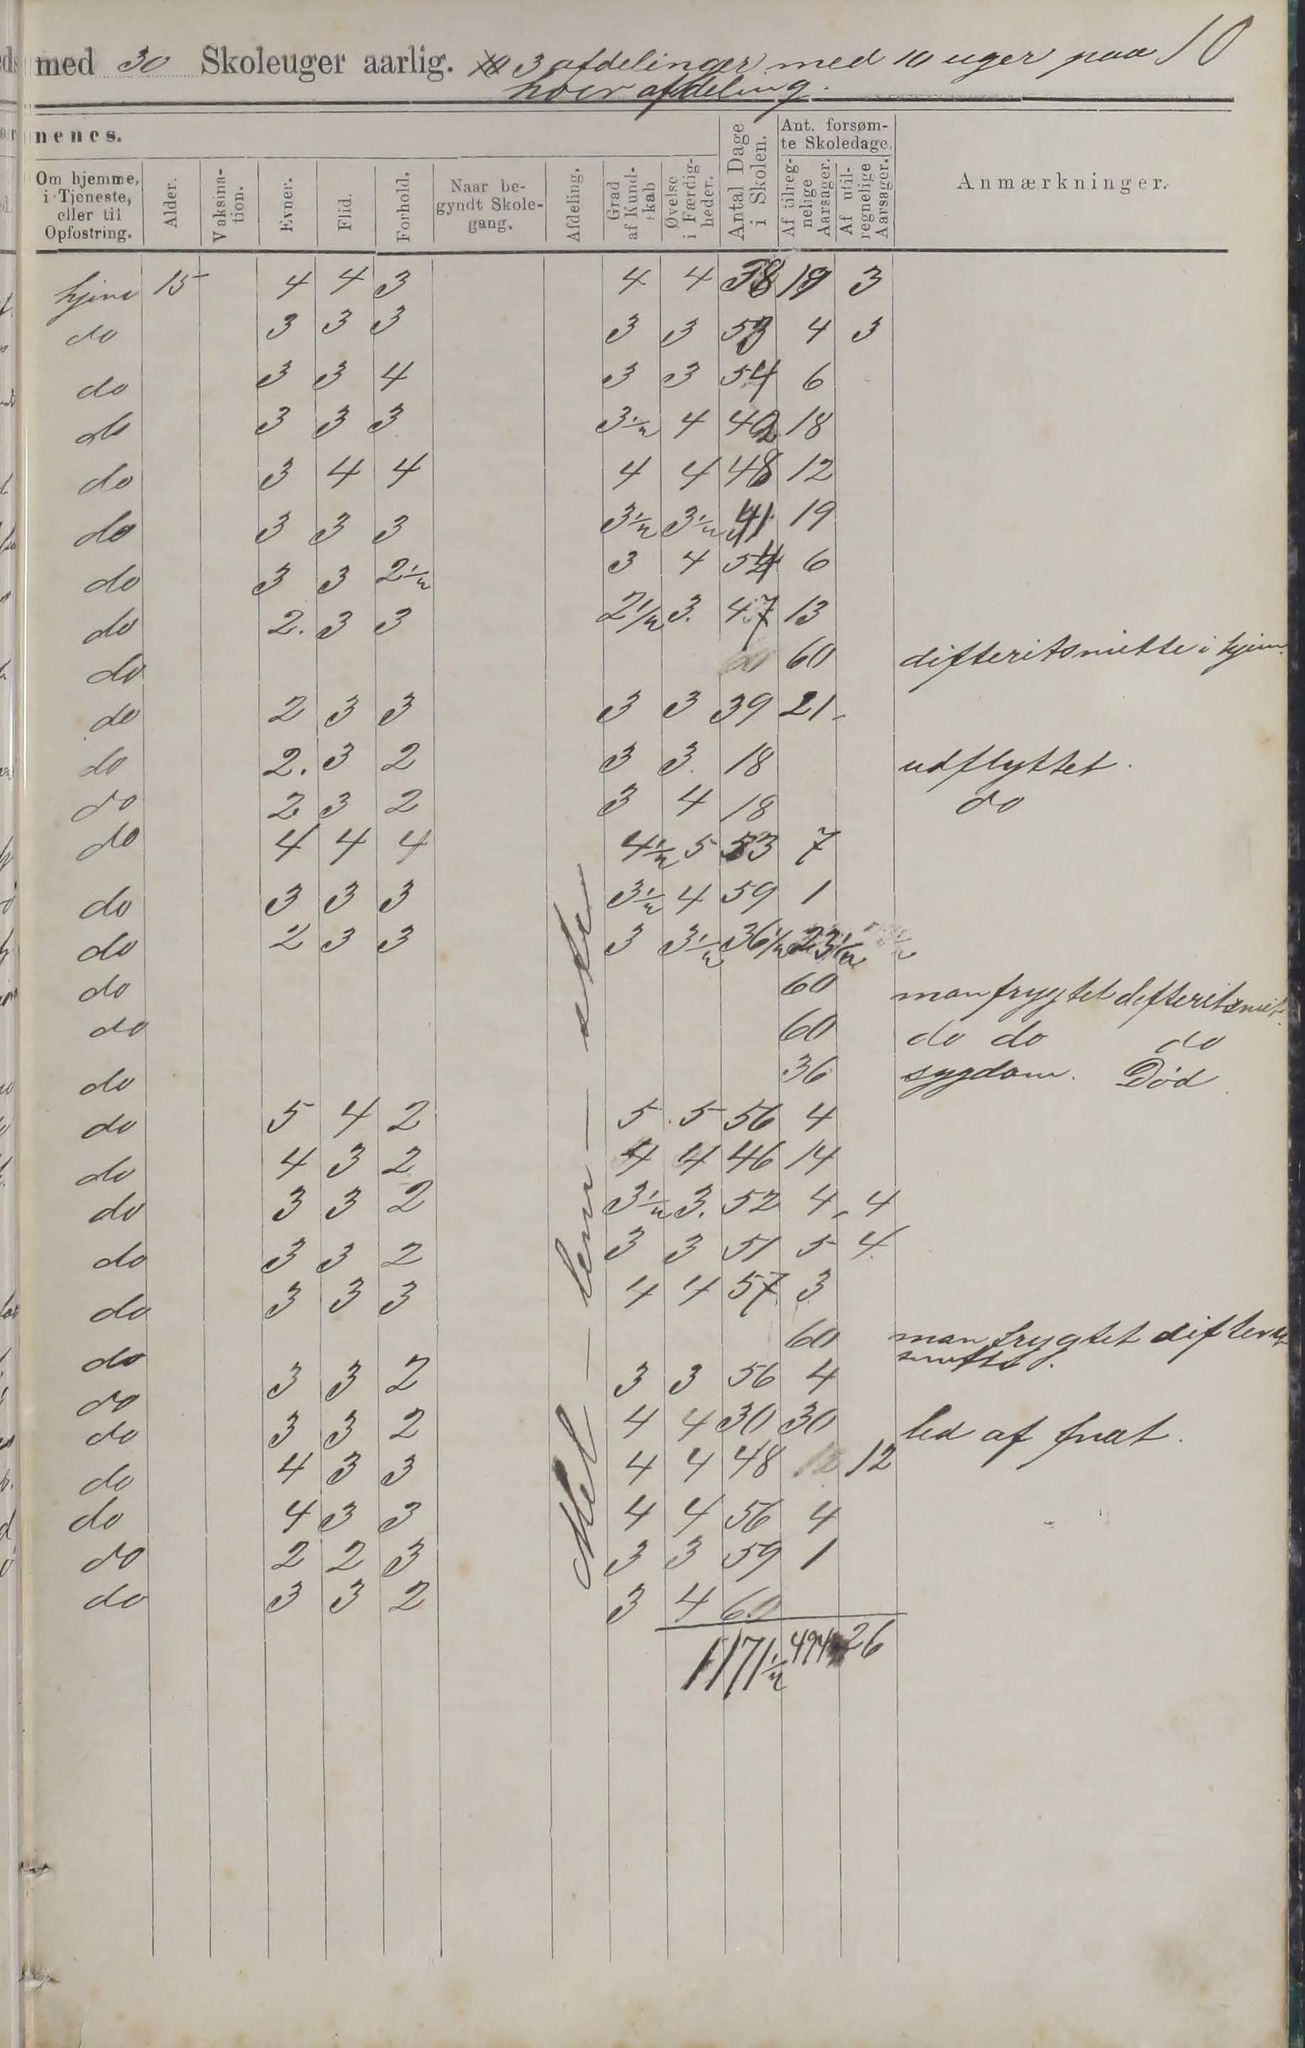 med 30 Skoleuger aarlig. 3 afdelinger med 10 uger paa 10
hver afdeling.
nenes.
Om hjemme, i Tjeneste, eller til Opfostring. Alder. Vaksination. Evner. Flid. Forhold. Naar begyndt Skolegang. Afdeling. Grad af Kundskab Øvelse i Færdigheder. Antal Dage i Skolen. Ant. forsømte Skoledage. Af tilregnelige Aarsager. Af utilregnelige Aarsager. Anmærkninger.
hjem 15 4 4 3 4 4 38 19 3
do 3 3 3 3 3 53 4 3
do 3 3 4 3 3 54 6
do 3 3 3 3½ 4 42 18
do 3 4 4 4 4 48 12
do 3 3 3 3½ 3½ 41 19
do 3 3 2½ 3 4 54 6
do 2. 3 3 2½ 3. 47 13
do 60 difteritsmitte i hjem.
do 2 3 3 3 3 39 21
do 2. 3 2 3 3. 18 udflyttet.
do 2 3 2 3 4 18 do
do 4 4 4 4½ 5 53 7
do 3 3 3 3½ 4 59 1
do 2 3 3 3 3½ 36½ 23½
do 60 man frygtet defteritsmit
do 60 do do do
do 36 sygdom. Død
do 5 4 2 5 5 56 4
do 4 3 2 4 4 46 14
do 3 3 2 3½ 3. 52 4 4
do 3 3 2 3 3 51 5 4
do 3 3 3 4 4 57 3
do 60 man frygtet difterit
smitte.
do 3 3 2 3 3 56 4
do 3 3 2 4 4 30 30 led af fnat.
do 4 3 3 4 4 48 12
do 4 3 3 4 4 56 4
do 2 2 3 3 3 59 1
do 3 3 2 3 4 60
1171½ 494 26
Mel - lem - ste